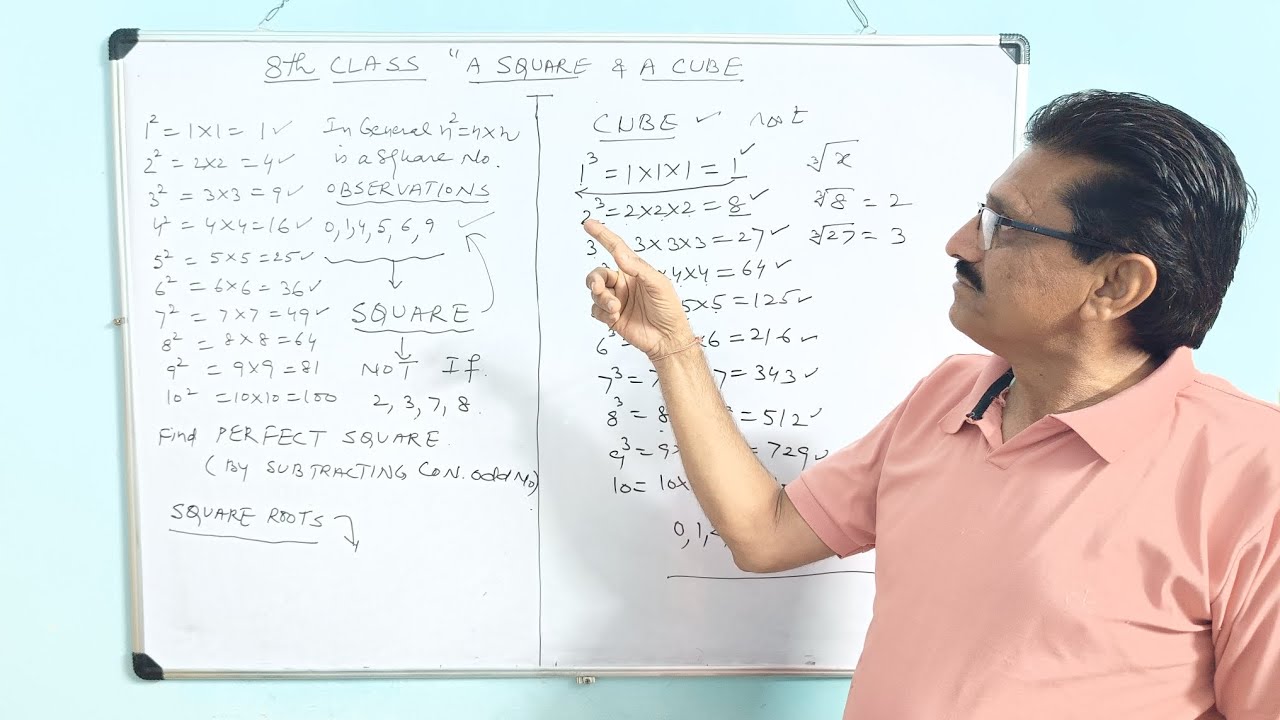 8th CLASS "A SQUARE & A CUBE
1² = 1×1 = 1✓
2² = 2×2 = 4✓
3² = 3×3 = 9✓
4² = 4×4 = 16✓
5² = 5×5 = 25✓
6² = 6×6 = 36✓
7² = 7×7 = 49✓
8² = 8×8 = 64
9² = 9×9 = 81
10² = 10×10 = 100
In General n² = n×n
is a square No.
OBSERVATIONS
0,1,4,5,6,9 ✓
SQUARE
NOT If
2, 3, 7, 8.
Find PERFECT SQUARE.
(BY SUBTRACTING CON. odd No)
SQUARE ROOTS
CUBE ✓ root
1³ = 1×1×1 = 1✓
2³ = 2×2×2 = 8✓
3 3×3×3 = 27✓
×4×4 = 64✓
5×5 = 125✓
6³ = ×6 = 216✓
7³ = 7 7 = 343✓
8³ = 8 = 512✓
9³ = 9× = 729✓
10 = 10×
0,1,
∛x
∛8 = 2
∛27 = 3